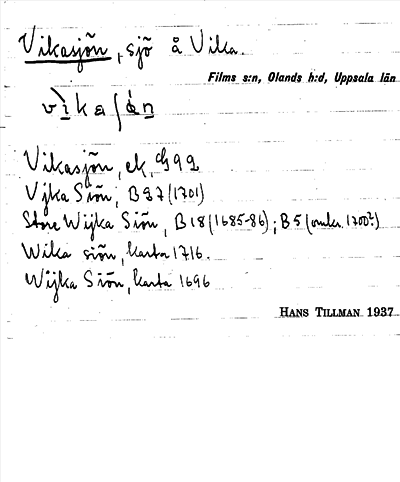 Vikasjön, sjö å Vika.
Films s:n, Olands h:d, Uppsala län
Vikasjön, ek, G 92
Vjka Siön, B 27 (1701)
Store Wijka Siön, B 18 (1685-86); B 5 (omkr. 1700?)
Wika siön, karta 1716.
Wijka Siön, karta 1696
HANS TILLMAN 1937